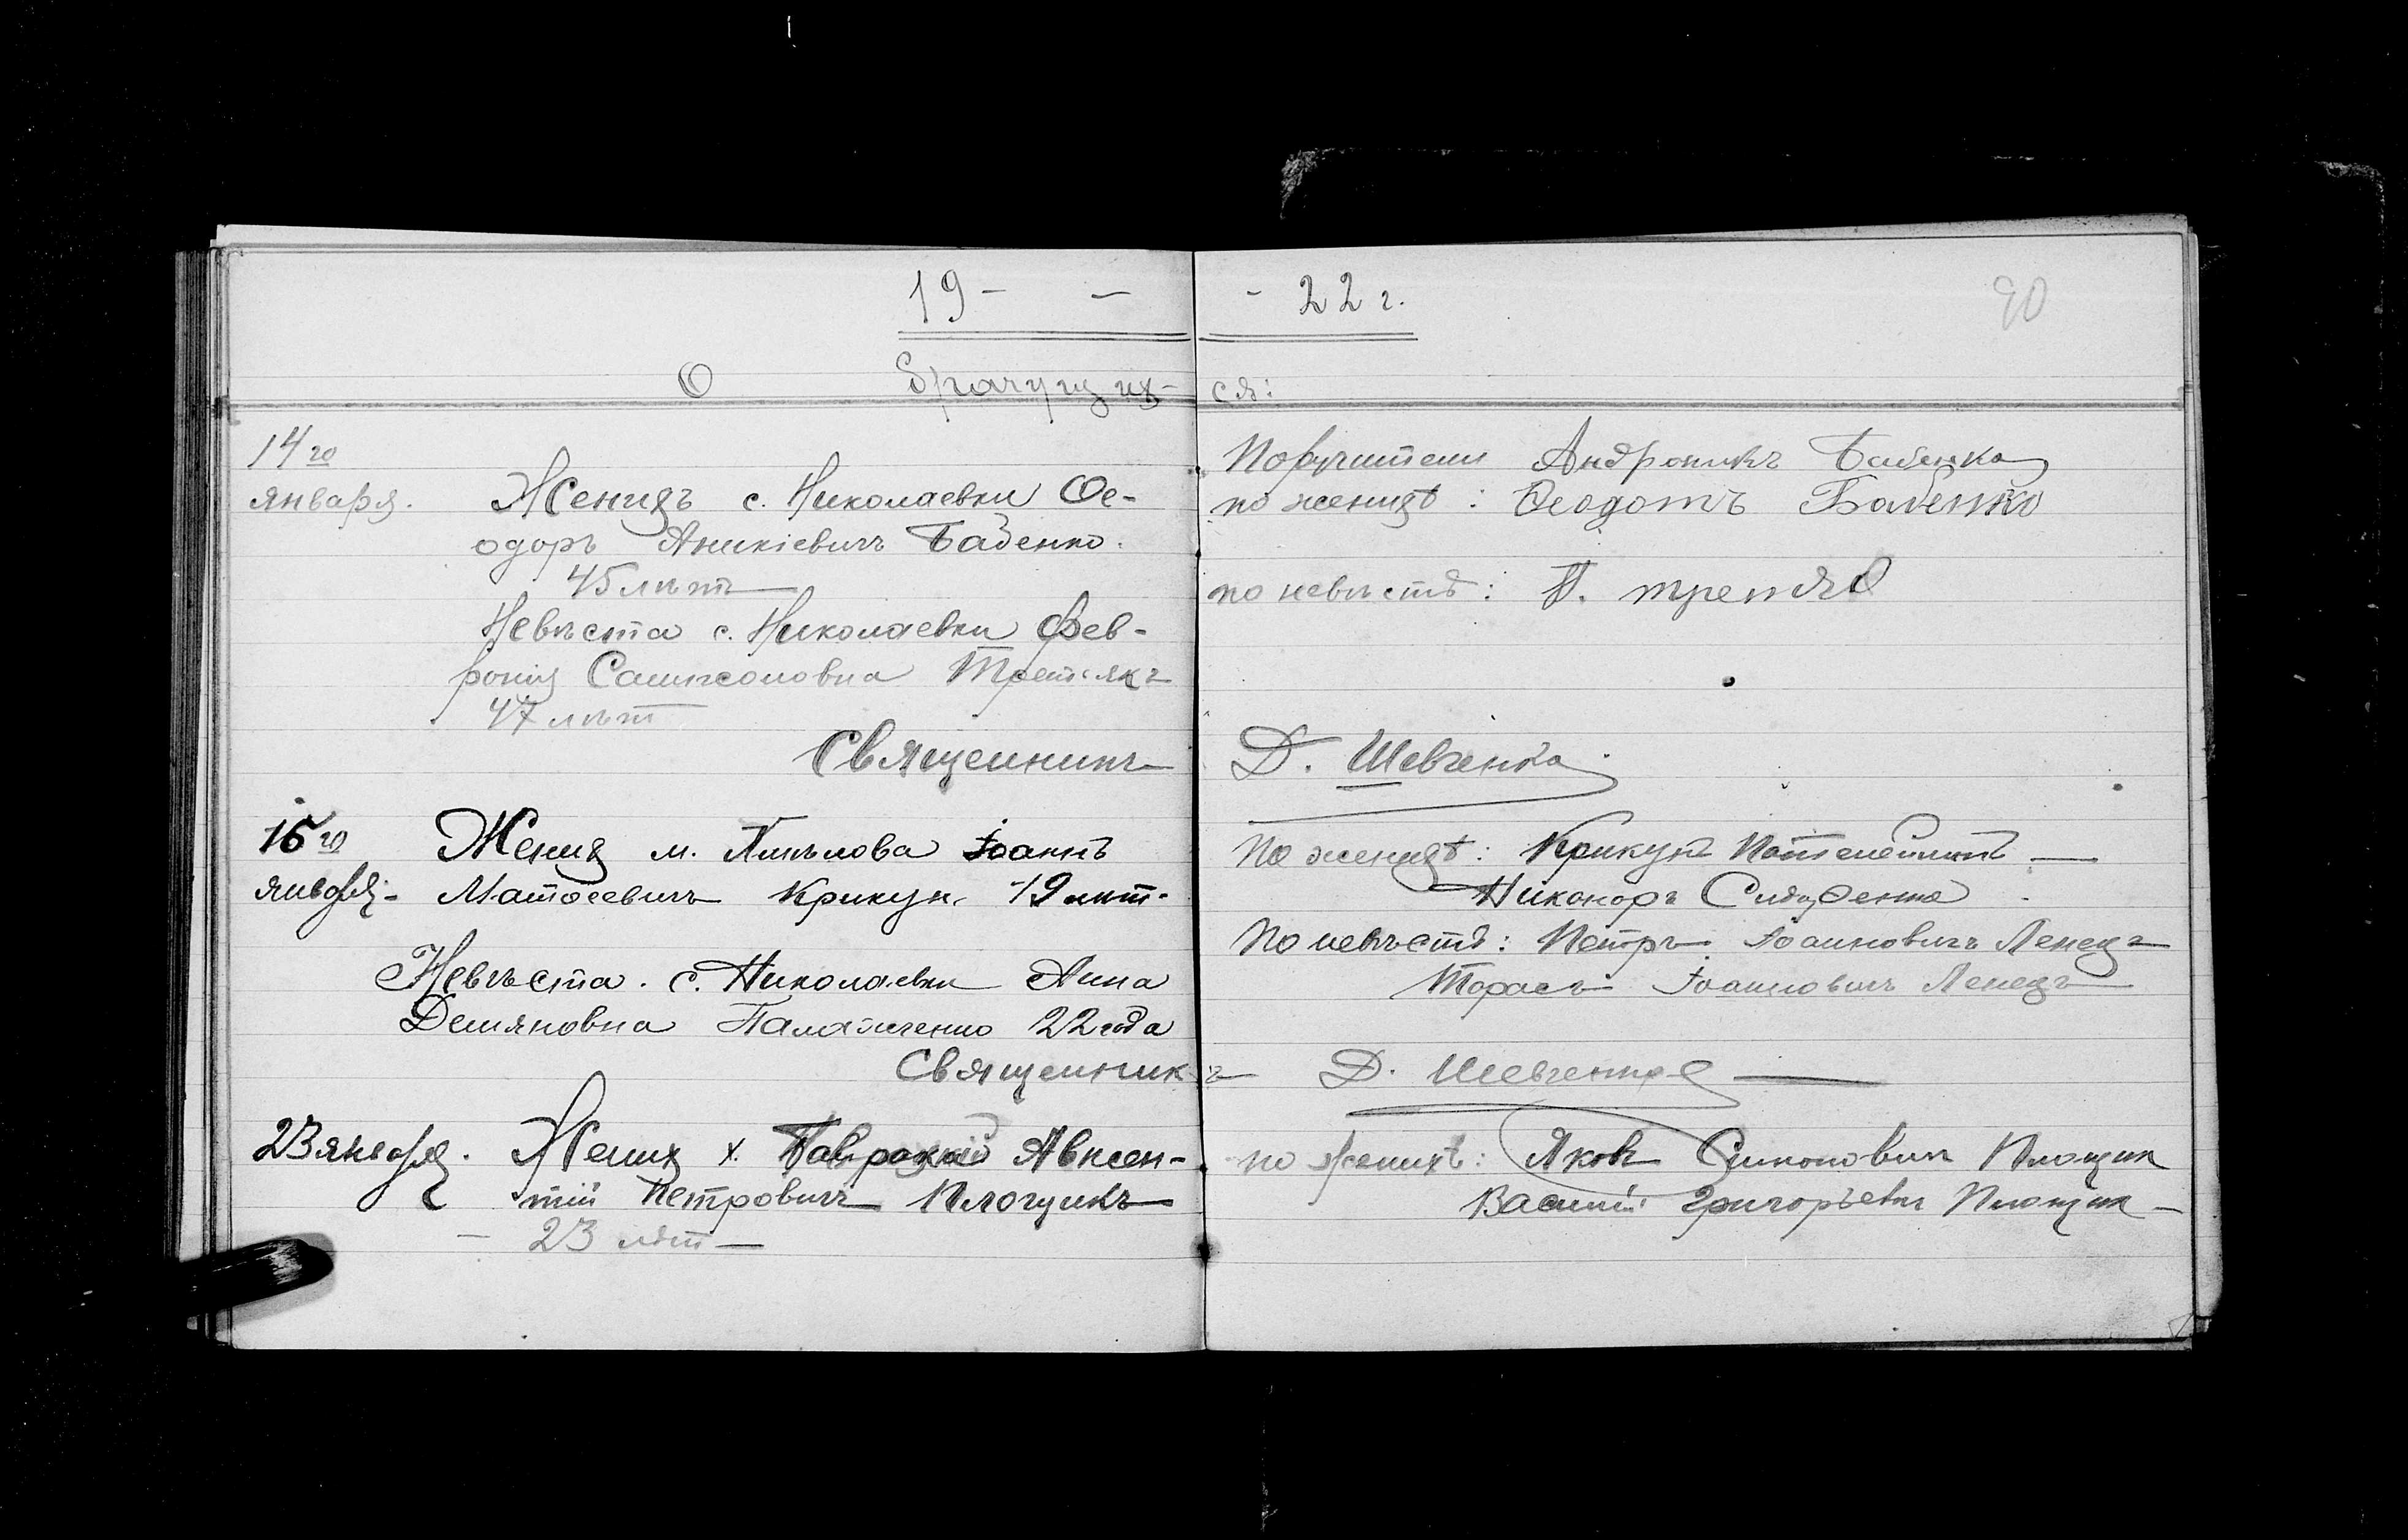 19 - - - 22 г.
90
О брачущих-ся:
14го
января.
Женихъ с. Николаевки Ѳе-
одоръ Аникіевичъ Бабенко.
45 лѣтъ
Невѣста с. Николаевки Фев-
ронія Сампсоновна Третьякъ
47 лѣтъ
Священникъ
Поручители Андроникъ Бабенка
по женихѣ: Ѳеодотъ Бабенко
по невѣстѣ: П.
Д. Шевченко
15го Женихъ м. Іоаннъ
января - Матѳеевичъ Крикунъ 19 лѣт.
Невѣста. с. Николаевки Анна
Демяновна 22 года
Священникъ
По женихѣ: Крикунъ
Никоноръ
По невѣстѣ: Петръ Іоанновичъ Ленецъ
Тарасъ Іоанновичъ Ленецъ
Д. Шевченко
23 января. Жених х. Авксен-
тій Петровичъ Плющикъ
- 23 лѣт -
по женихѣ: Яковъ Симоновичъ Плющик
Василій Григорьевич Плющик -